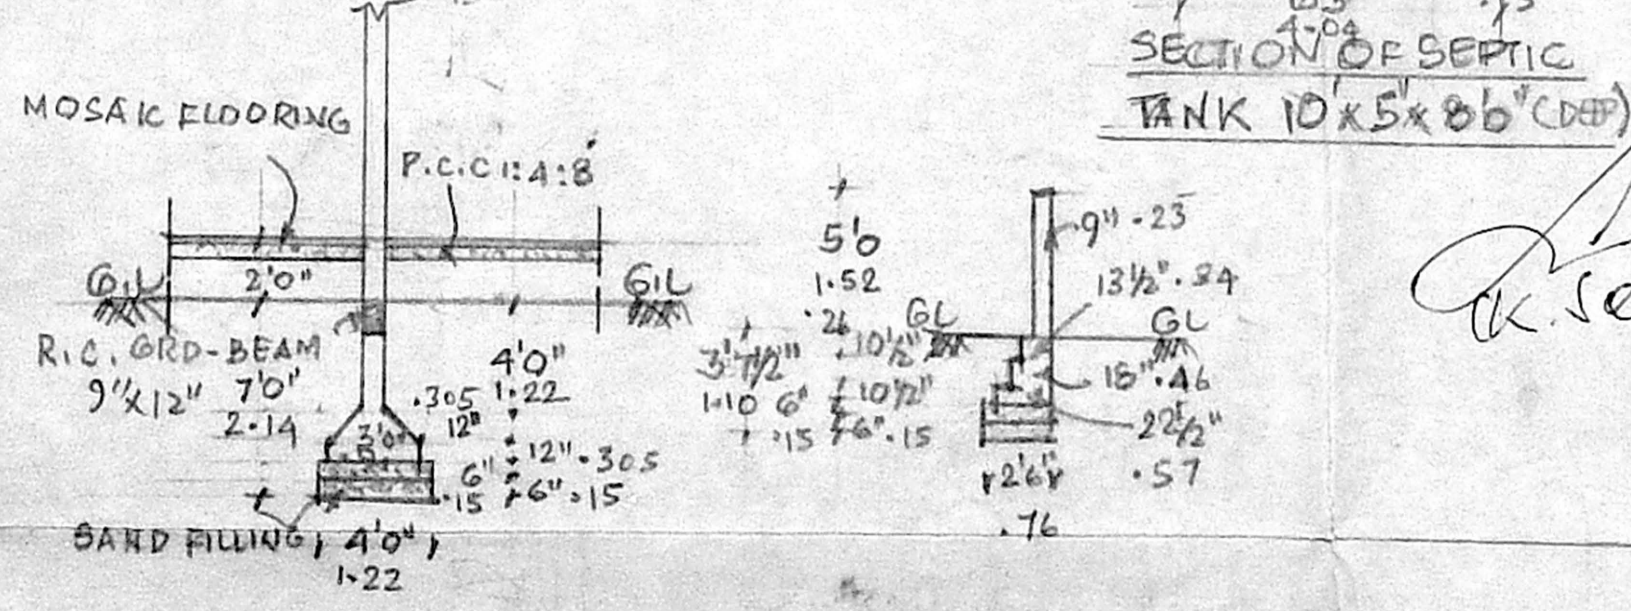 4-04
SECTION OF SEPTIC
TANK 10'x5'x8'6" (DEEP)
MOSAIC FLOORING
P.C.C 1:4:8
2'0"
G.L
G.L
R.C. GRD-BEAM
9"x12"
7'0"
2.14
4'0"
1.22
.305
12"
3'0"
12" .305
6"
.15
6" .15
SAND FILLING
4'0"
1.22
5'0
1.52
.26
10½"
3'7½"
1.10
6"
.15
10½"
6" .15
9" .23
13½" .34
GL
GL
18" .46
22½"
.57
2'6"
.76